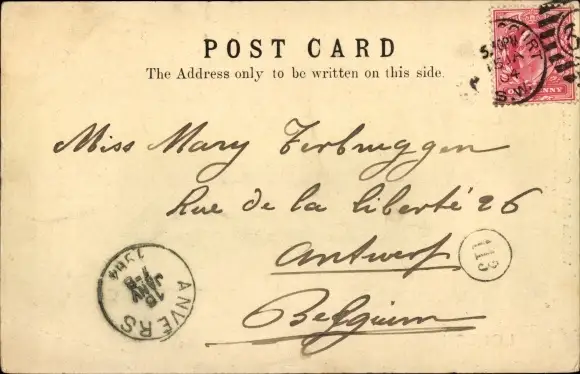 POST CARD
The Address only to be written on this side.
Miss Mary Terbruggen
Rue de la liberté 26
Antwerp
Belgium
113
ANVERS
1904
S.W.
04